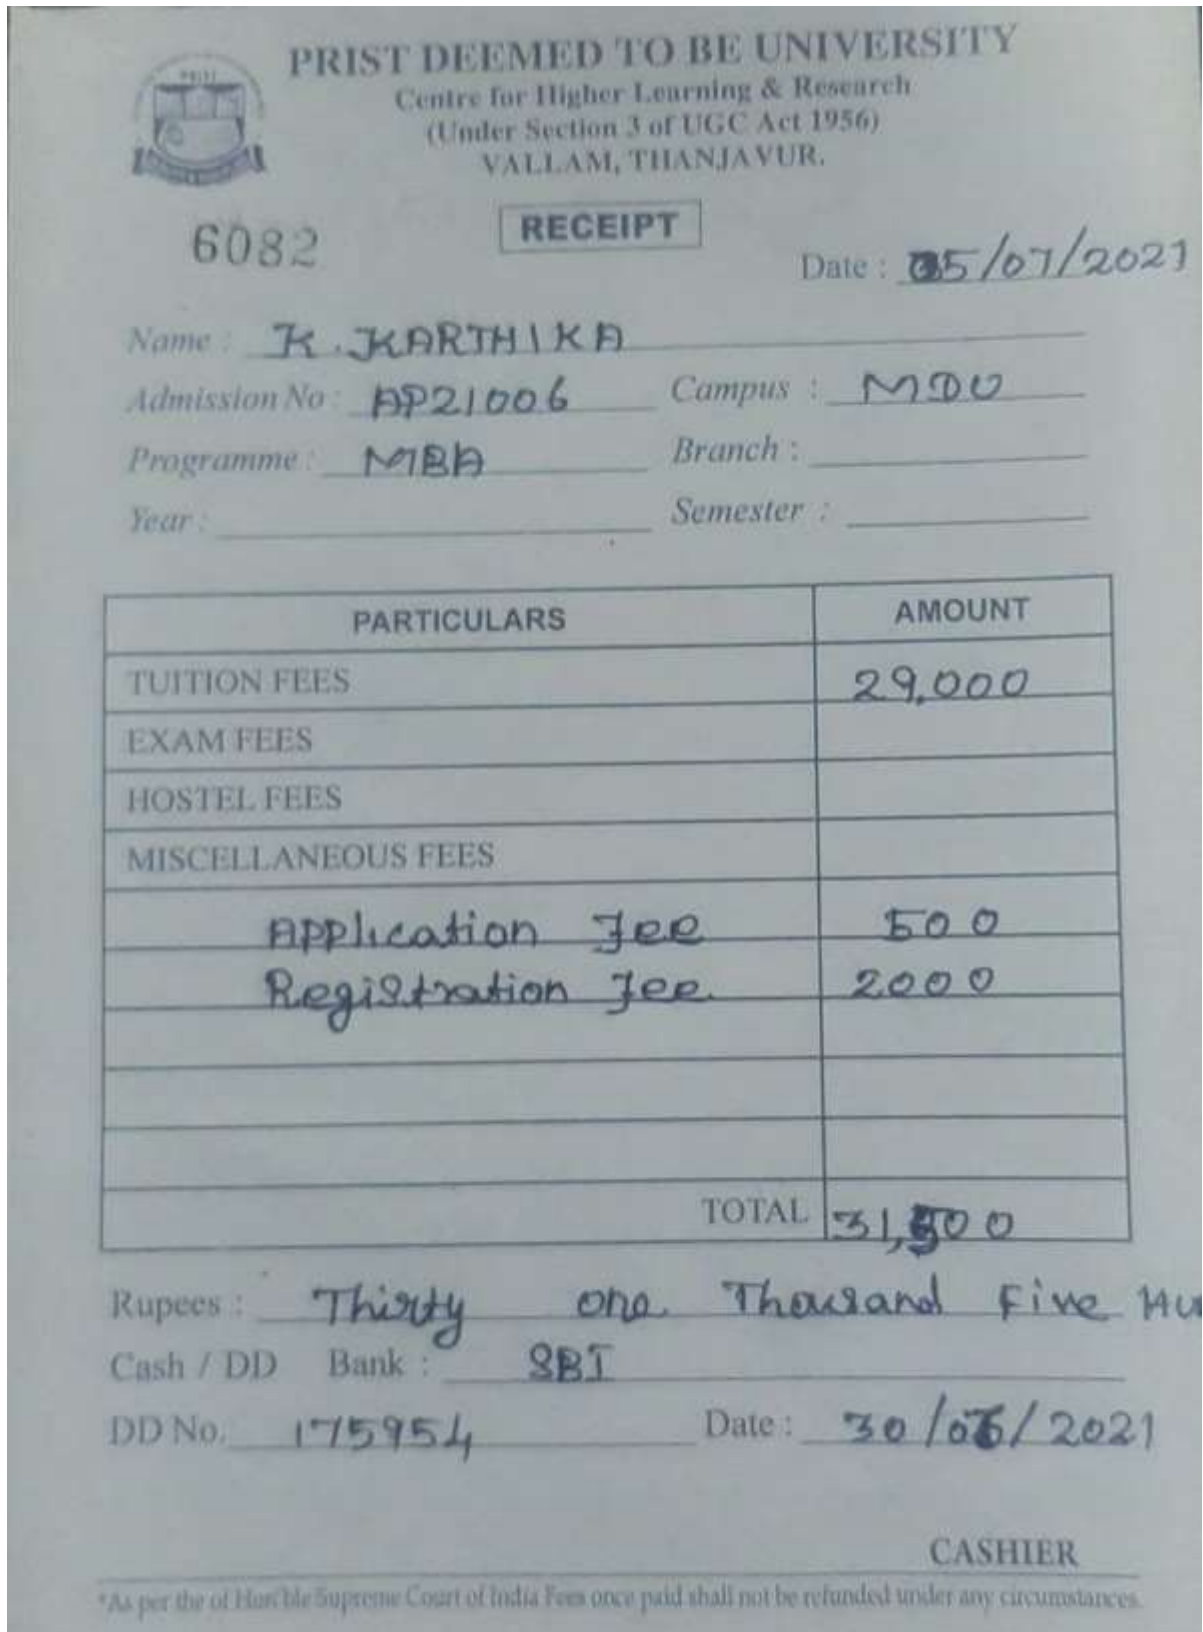 PRIST
PRIST DEEMED TO BE UNIVERSITY
Centre for Higher Learning & Research
(Under Section 3 of UGC Act 1956)
VALLAM, THANJAVUR.
6082
RECEIPT
Date : 05/07/2021
Name : K. KARTHIKA
Admission No : AP21006 Campus : MDU
Programme : MBA Branch :
Year : Semester :
PARTICULARS AMOUNT
TUITION FEES 29,000
EXAM FEES
HOSTEL FEES
MISCELLANEOUS FEES
Application Fee 500
Registration Fee 2000
TOTAL 31,500
Rupees : Thirty one Thousand Five Hu
Cash / DD Bank : SBI
DD No. 175954 Date : 30/06/2021
CASHIER
*As per the of Hon'ble Supreme Court of India Fees once paid shall not be refunded under any circumstances.